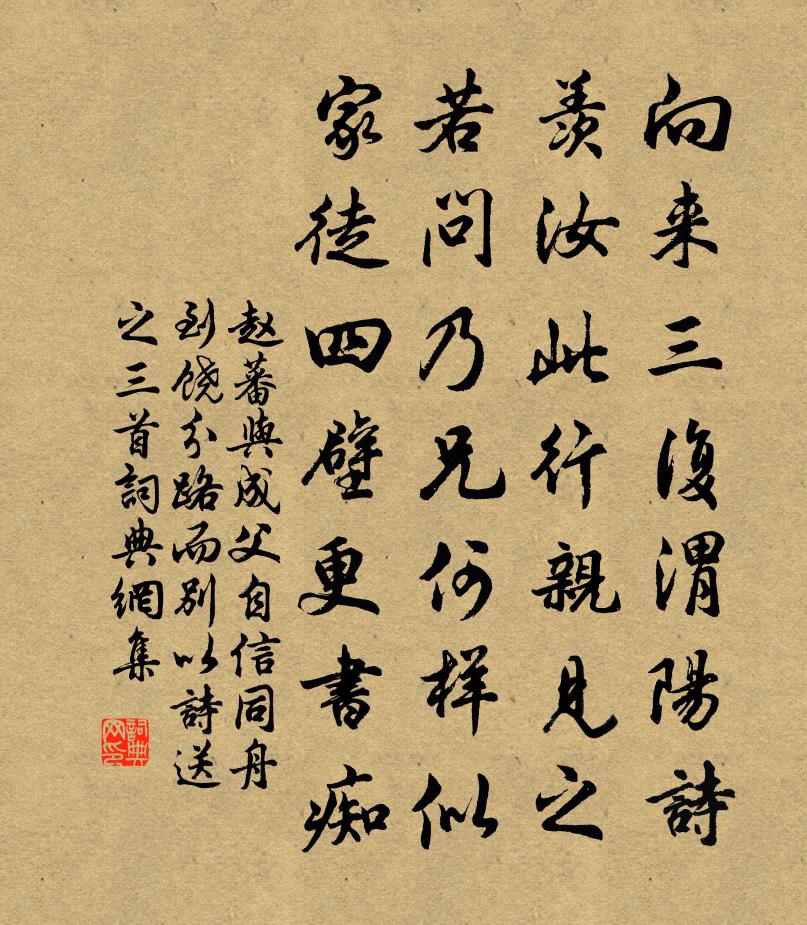 向来三復渭陽詩
羨汝此行親見之
若問乃兄何样似
家徒四壁更書痴
赵蕃與成父自信同舟
到饶分路而别以詩送
之三首詞典網集
詞典网印